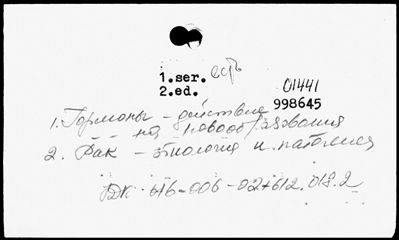 1.ser. есть
2.ed.
01441
998645
1. Гормоны - действие
- - на новообразования
2. Рак - этиология и патогенез
ББК 616-006-02+612.018.2